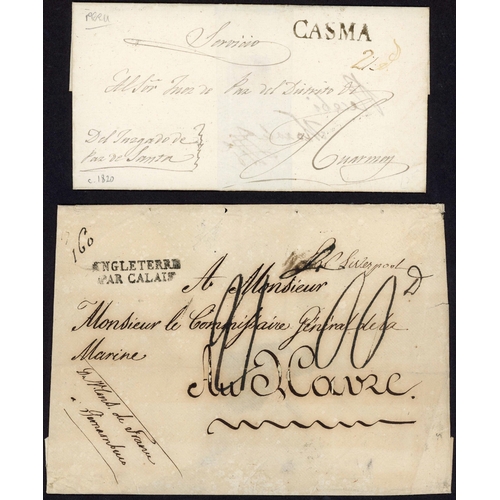 PERU
Servicio
CASMA
Al Sõr Juez de Paz del Distrito de
Huarmey
Del Juzgado de
Paz de Santa
c. 1820
160
ANGLETERRE
PAR CALAIS
Liverpool
A Monsieur
D
Monsieur le Commissaire Général de la
Marine
Au Havre.
de France